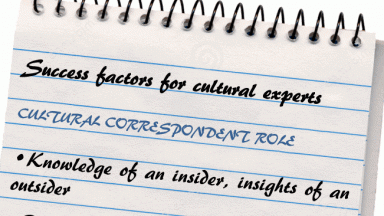 Success factors for cultural experts
CULTURAL CORRESPONDENT ROLE
• Knowledge of an insider, insights of an
outsider